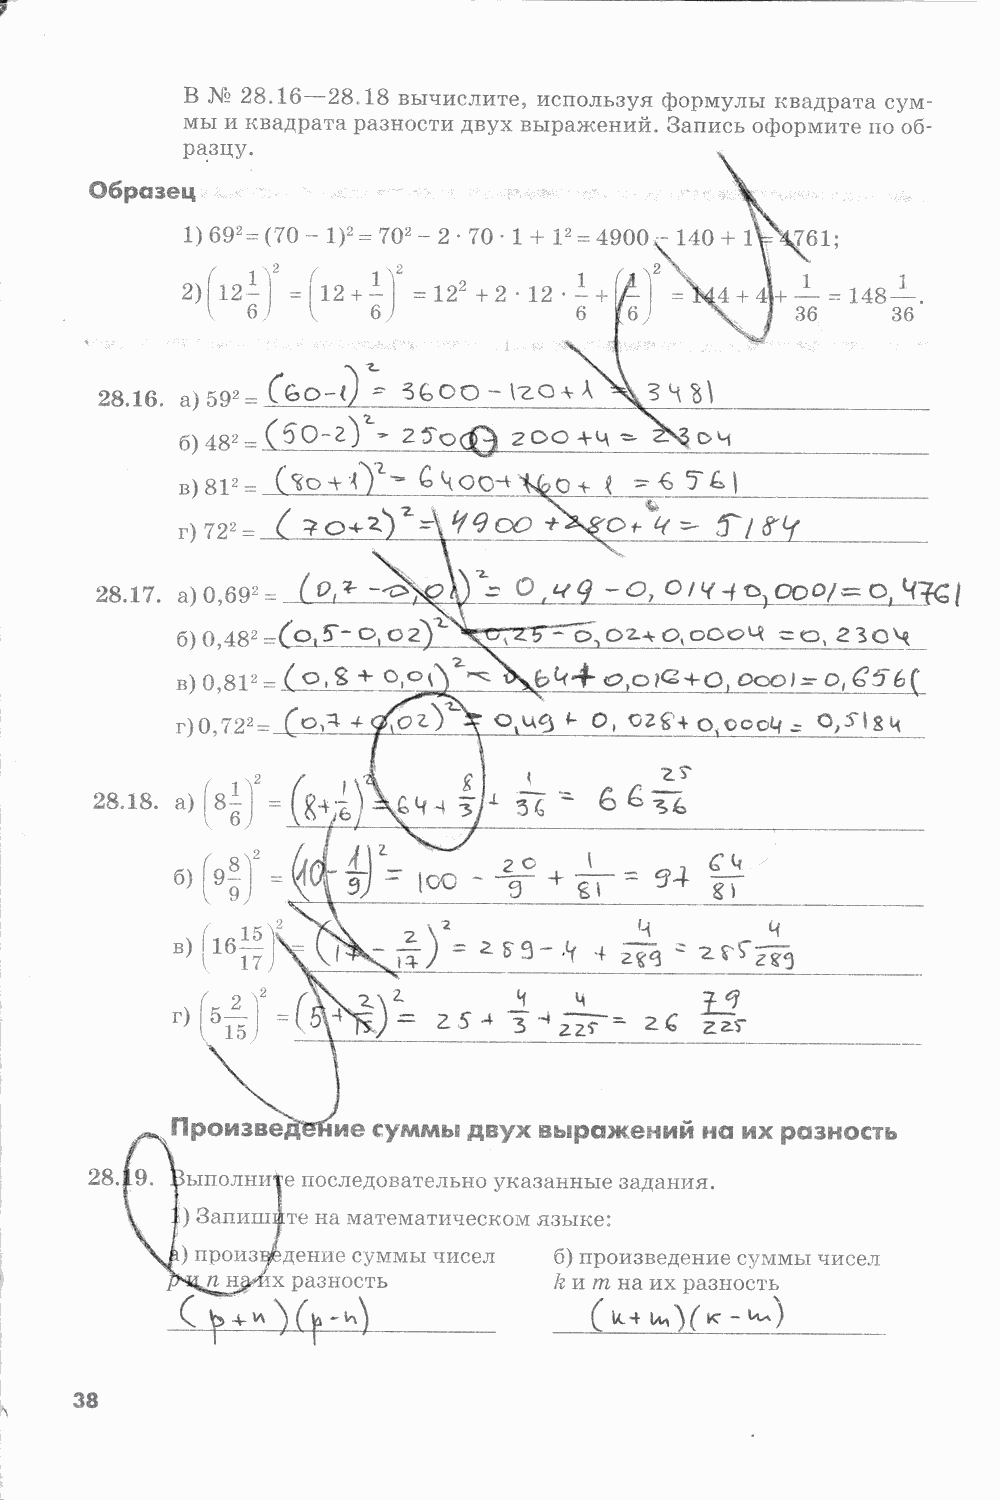 В № 28.16—28.18 вычислите, используя формулы квадрата сум-
мы и квадрата разности двух выражений. Запись оформите по об-
разцу.
Образец
1) 69² = (70 − 1)² = 70² − 2 · 70 · 1 + 1² = 4900 − 140 + 1 = 4761;
2) (12 1/6)² = (12 + 1/6)² = 12² + 2 · 12 · 1/6 + (1/6)² = 144 + 4 + 1/36 = 148 1/36.
28.16. а) 59² = (60-1)² = 3600-120+1 = 3481
б) 48² = (50-2)² = 2500-200+4 = 2304
в) 81² = (80+1)² = 6400+160+1 = 6561
г) 72² = (70+2)² = 4900+280+4 = 5184
28.17. а) 0,69² = (0,7-0,01)² = 0,49-0,014+0,0001 = 0,4761
б) 0,48² = (0,5-0,02)² = 0,25-0,02+0,0004 = 0,2304
в) 0,81² = (0,8+0,01)² = 0,64+0,016+0,0001 = 0,6561
г) 0,72² = (0,7+0,02)² = 0,49+0,028+0,0004 = 0,5184
28.18. а) (8 1/6)² = (8+1/6)² = 64+8/3+1/36 = 66 25/36
б) (9 8/9)² = (10-1/9)² = 100-20/9+1/81 = 97 64/81
в) (16 15/17)² = (17-2/17)² = 289-4+4/289 = 285 4/289
г) (5 2/15)² = (5+2/15)² = 25+4/3+4/225 = 26 79/225
Произведение суммы двух выражений на их разность
28.19. Выполните последовательно указанные задания.
1) Запишите на математическом языке:
а) произведение суммы чисел
p и n на их разность
(p+n)(p-n)
б) произведение суммы чисел
k и m на их разность
(k+m)(k-m)
38